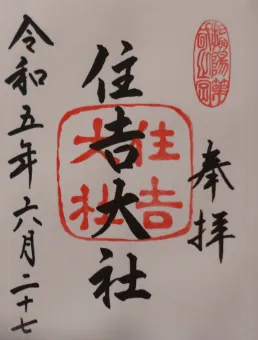 奉拝
住吉大社
住吉大社
令和五年六月二十七